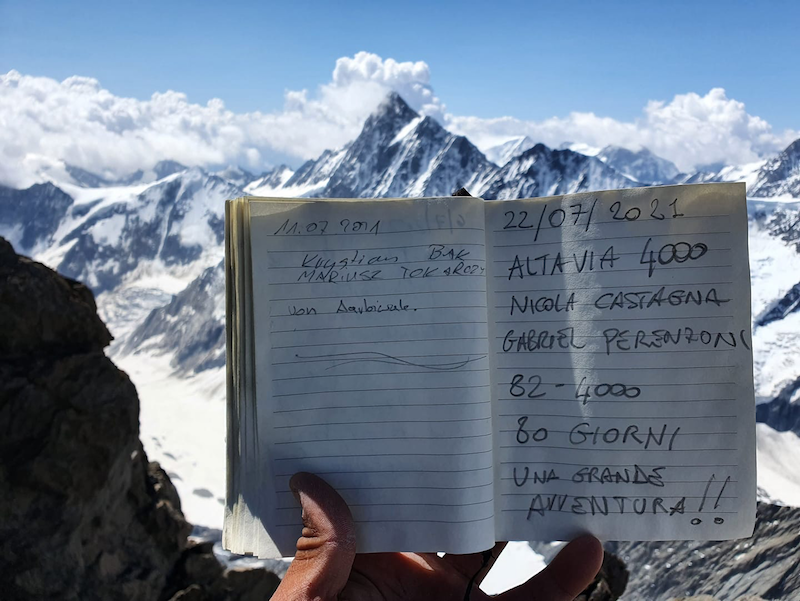 11.07 2021
Krystian BAK
MARIUSZ TOKARCZY
von
22/07/2021
ALTAVIA 4000
NICOLA CASTAGNA
GABRIEL PERENZONI
82-4000
80 GIORNI
UNA GRANDE
AVVENTURA!!